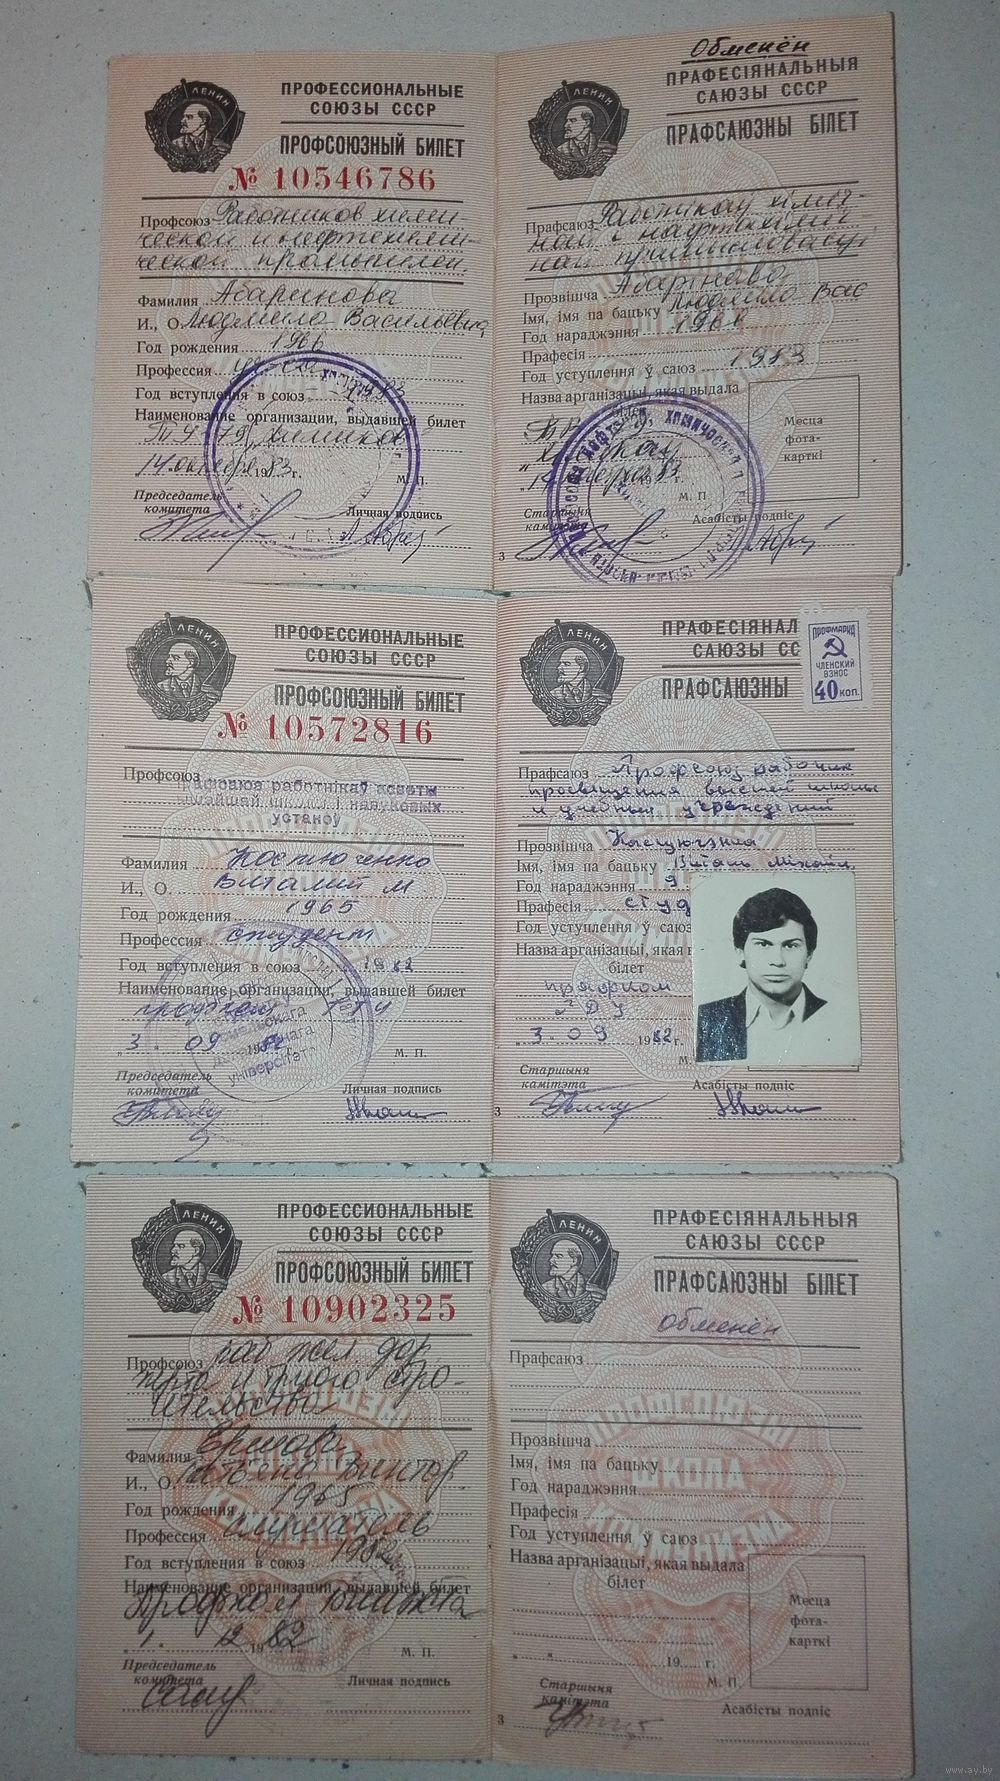 ЛЕНИН
ПРОФЕССИОНАЛЬНЫЕ
СОЮЗЫ СССР
ПРОФСОЮЗНЫЙ БИЛЕТ
№ 10546786
Профсоюз Работников хими-
ческой и нефтехими-
ческой промышлен.
Фамилия Абаринова
И., О. Людмила Васильевна
Год рождения 1966
Профессия уч-ся
Год вступления в союз 1983
Наименование организации, выдавшей билет
ТУ-79 Химиков
14 октября 1983 г.
М. П.
Председатель
комитета
Личная подпись
Обменён
ЛЕНИН
ПРАФЕСІЯНАЛЬНЫЯ
САЮЗЫ СССР
ПРАФСАЮЗНЫ БІЛЕТ
Прафсаюз Работнікаў хіміч-
най і нафтахімі
най прамысловасці
Прозвішча Абарінава
Імя, імя па бацьку Людміла Вас
Год нараджэння 1966
Прафесія
Год уступлення ў саюз 1983
Назва арганізацыі, якая выдала
білет
19 83
М. П.
Месца
фота-
карткі
Старшыня
камітэта
Асабісты подпіс
3
ЛЕНИН
ПРОФЕССИОНАЛЬНЫЕ
СОЮЗЫ СССР
ПРОФСОЮЗНЫЙ БИЛЕТ
№ 10572816
Профсоюз
Прафсаюз работнікаў асветы
вышэйшай школы і навуковых
устаноў
Фамилия Костюченко
И., О. Виталий М
Год рождения 1965
Профессия студент
Год вступления в союз 1982
Наименование организации, выдавшей билет
профком ГГУ
„3. 09 1982
М. П.
Председатель
комитета
Личная подпись
ЛЕНИН
ПРАФЕСІЯНАЛ
САЮЗЫ СС
ПРАФСАЮЗНЫ
ПРОФМАРКА
ЧЛЕНСКИЙ
ВЗНОС
40 коп.
Прафсаюз Профсоюз рабочих
просвещения высшей школы
и учебных учреждений
Прозвішча Касцючэнка
Імя, імя па бацьку Віталь Міхайл.
Год нараджэння 9
Прафесія студ
Год уступлення ў саюз
Назва арганізацыі, якая в
білет
прафком
ГДУ
„3. 09 1982 г.
М.
Старшыня
камітэта
Асабісты подпіс
3
ЛЕНИН
ПРОФЕССИОНАЛЬНЫЕ
СОЮЗЫ СССР
ПРОФСОЮЗНЫЙ БИЛЕТ
№ 10902325
Профсоюз раб жел дор
Фамилия Ершова
И., О. Татьяна Виктор
Год рождения 1965
Профессия
Год вступления в союз 1982
Наименование организации, выдавшей билет
Профком
„1. 12 1982
М. П.
Председатель
комитета
Личная подпись
ЛЕНИН
ПРАФЕСІЯНАЛЬНЫЯ
САЮЗЫ СССР
ПРАФСАЮЗНЫ БІЛЕТ
Обменён
Прафсаюз
Прозвішча
Імя, імя па бацьку
Год нараджэння
Прафесія
Год уступлення ў саюз
Назва арганізацыі, якая выдала
білет
„ “ 19 г.
М. П.
Месца
фота-
карткі
Старшыня
камітэта
Асабісты подпіс
3
ПРОФСОЮЗЫ
ШКОЛА
КОММУНИЗМА
www.ay.by